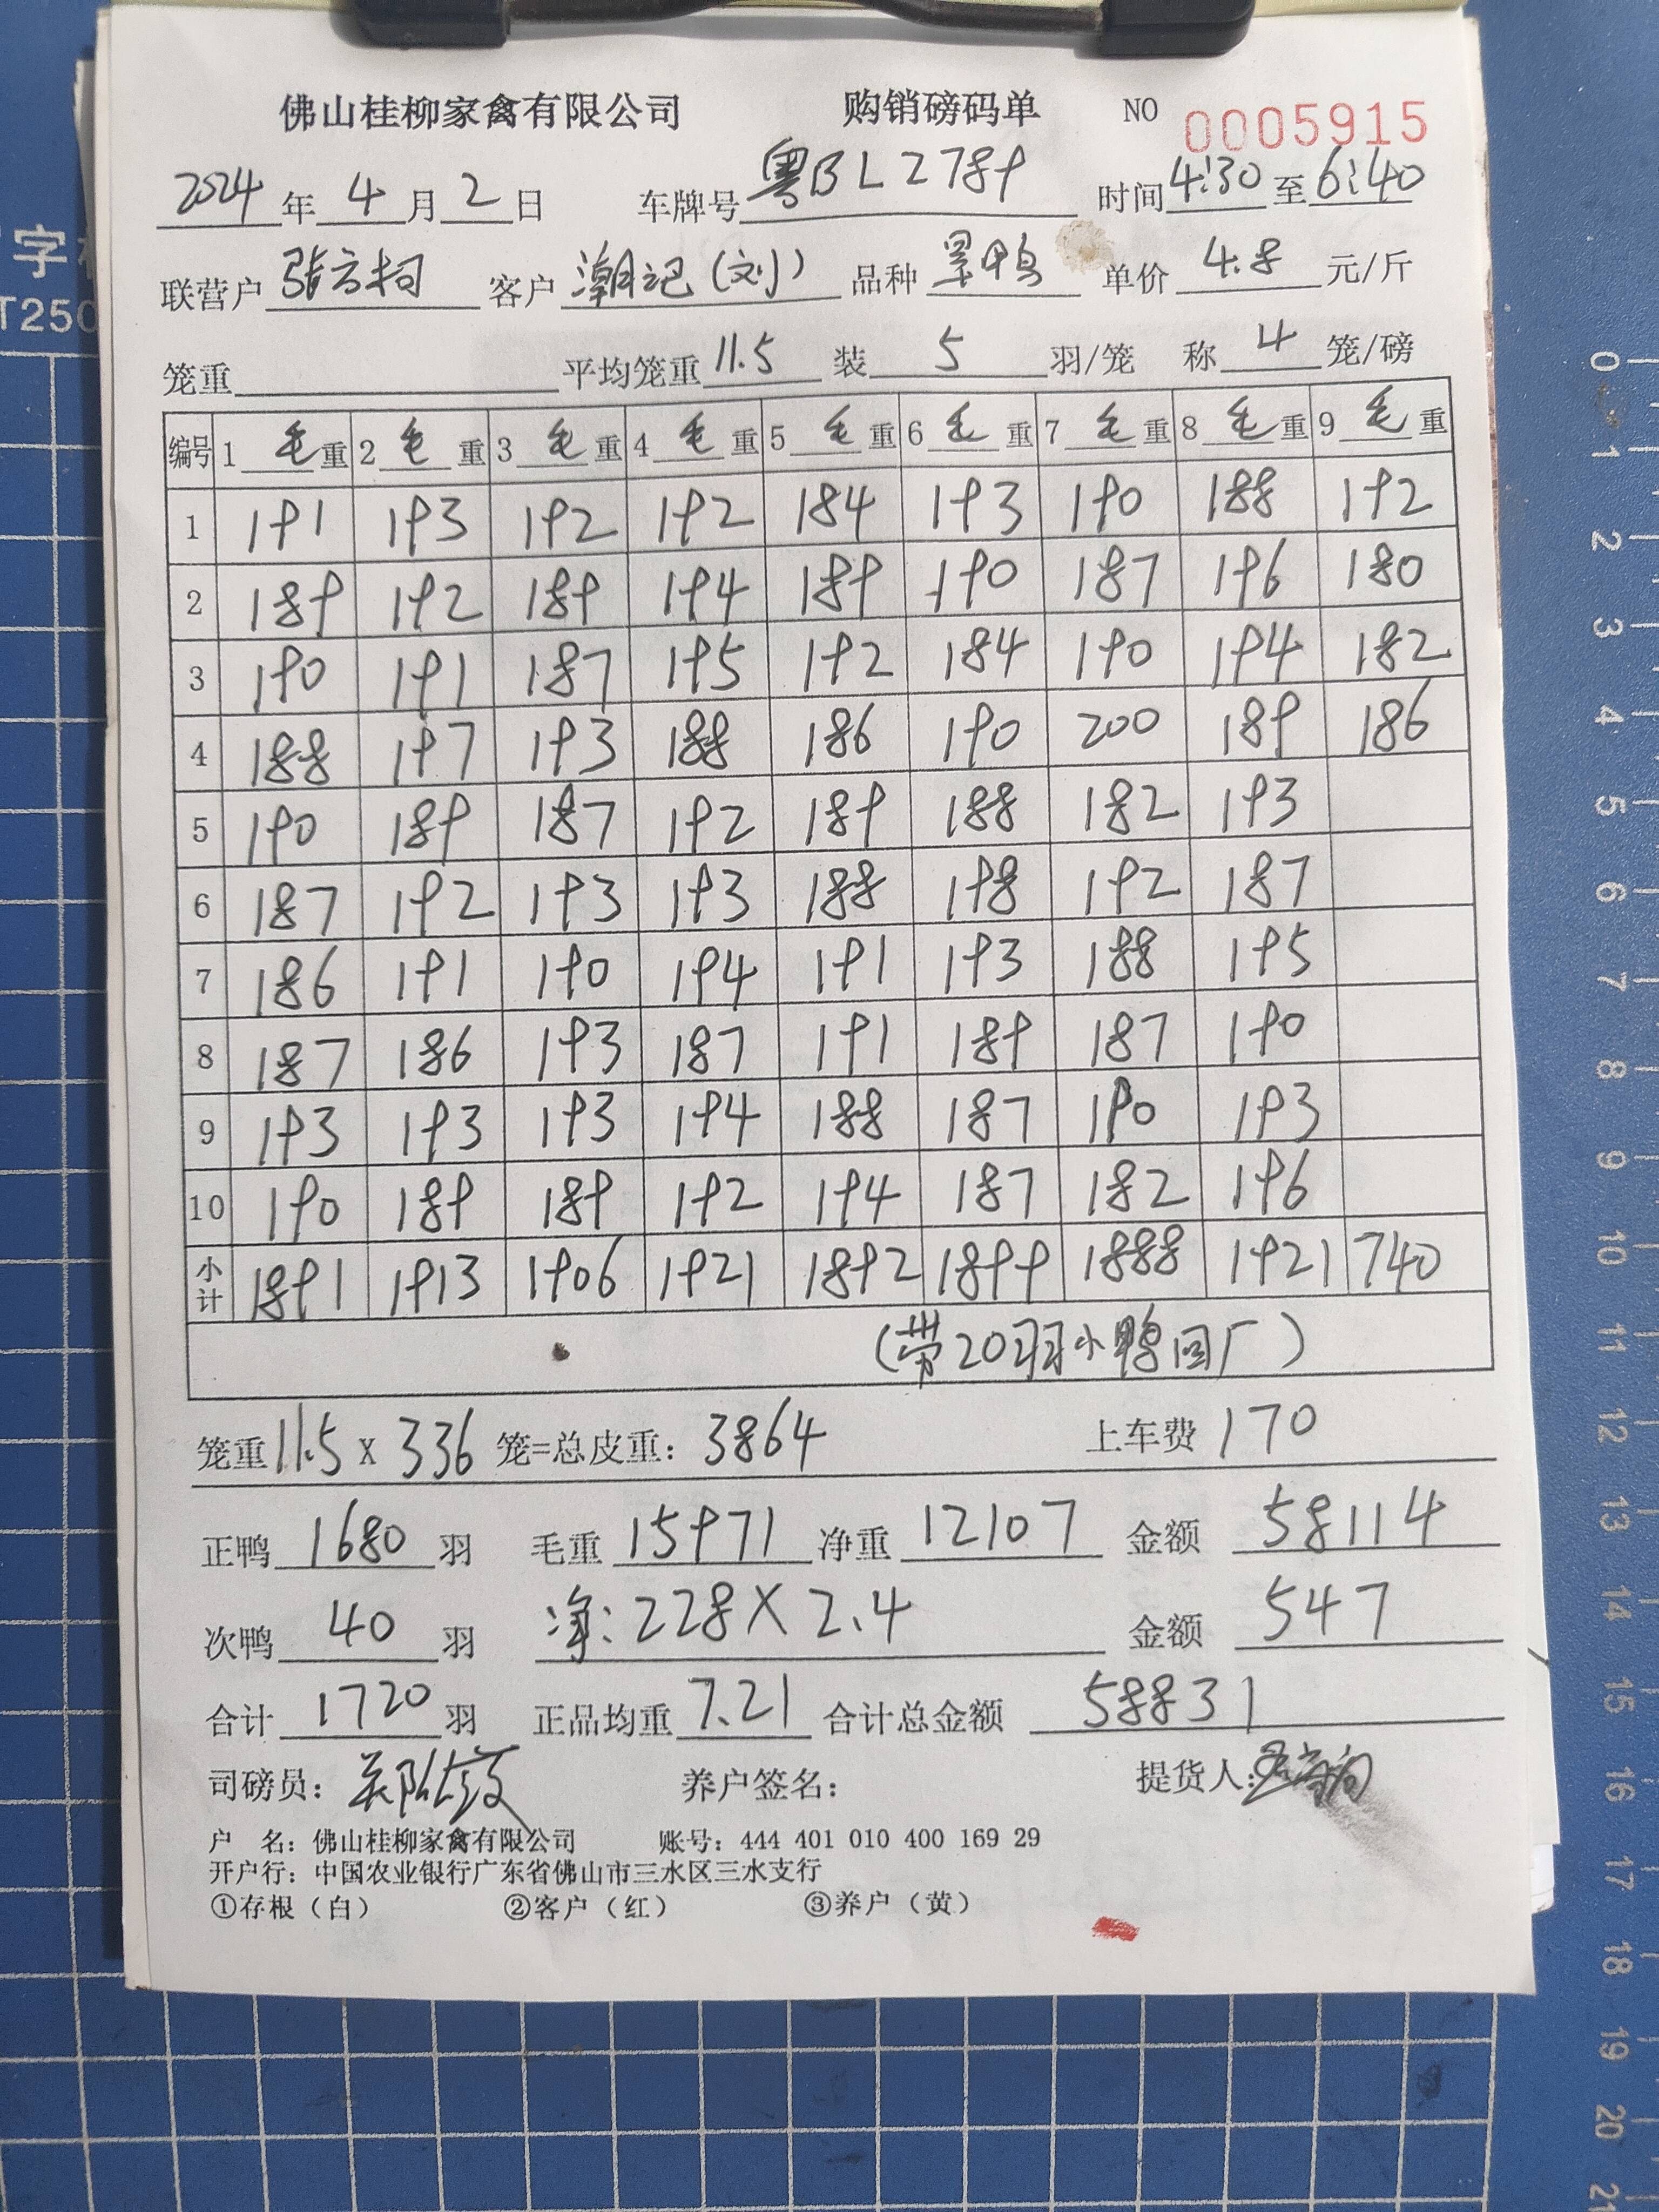 佛山桂柳家禽有限公司 购销磅码单 NO 0005915
2024 年 4 月 2 日 车牌号 粤BLZ789 时间 4:30 至 6:40
联营户 张立柯 客户 潮记(刘) 品种 黑鸭 单价 4.8 元/斤
笼重 平均笼重 11.5 装 5 羽/笼 称 4 笼/磅
编号 1 毛 重 2 毛 重 3 毛 重 4 毛 重 5 毛 重 6 毛 重 7 毛 重 8 毛 重 9 毛 重
1 191 193 192 192 184 193 190 188 192
2 189 192 189 194 189 190 187 196 180
3 190 191 187 195 192 184 190 194 182
4 188 197 193 188 186 190 200 189 186
5 190 189 187 192 189 188 182 193
6 187 192 193 193 188 198 192 187
7 186 191 190 194 191 193 188 195
8 187 186 193 187 191 189 187 190
9 193 193 193 194 188 187 190 193
10 190 189 189 192 194 187 182 196
小计 1891 1913 1906 1921 1892 1899 1888 1921 740
(带20羽小鸭回厂)
笼重 11.5 X 336 笼=总皮重: 3864 上车费 170
正鸭 1680 羽 毛重 15971 净重 12107 金额 58114
次鸭 40 羽 净: 228X2.4 金额 547
合计 1720 羽 正品均重 7.21 合计总金额 58831
司磅员: 养户签名: 提货人:
户 名: 佛山桂柳家禽有限公司 账号: 444 401 010 400 169 29
开户行: 中国农业银行广东省佛山市三水区三水支行
①存根（白） ②客户（红） ③养户（黄）
字
T250
0
1
2
3
4
5
6
7
8
9
10
11
12
13
14
15
16
17
18
19
20